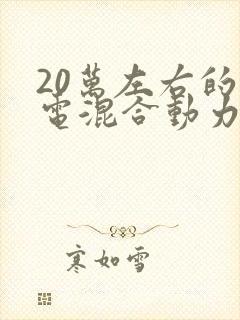 20萬左右的
電混合動力
寒如雪